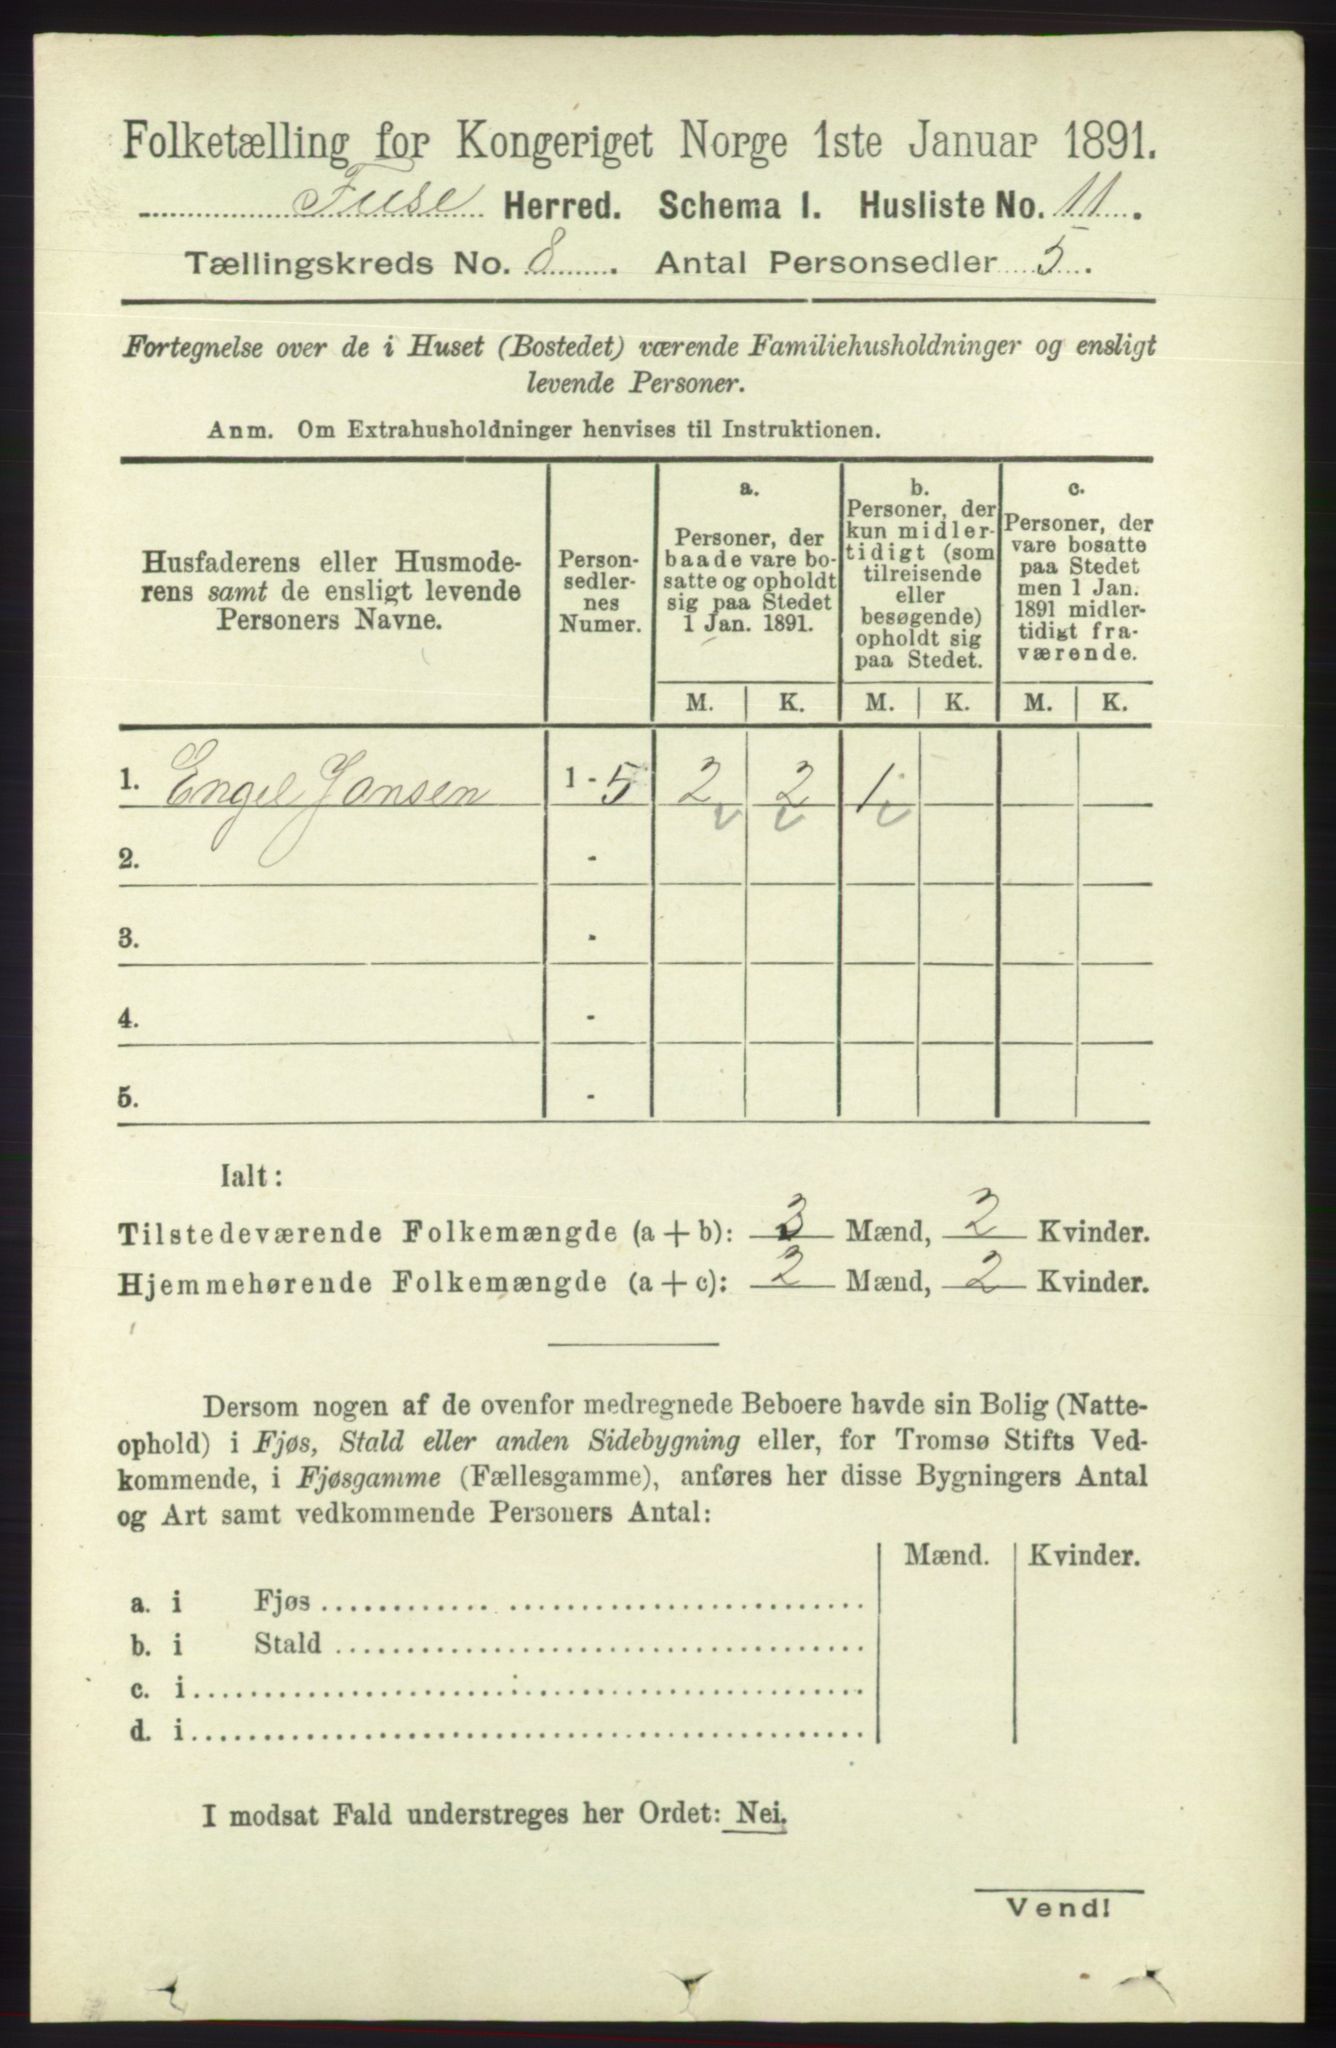 Folketælling for Kongeriget Norge 1ste Januar 1891.
Fuse Herred. Schema 1. Husliste No. 11.
Tællingskreds No. 8. Antal Personsedler 5.
Fortegnelse over de i Huset (Bostedet) værende Familiehusholdninger og ensligt
levende Personer.
Anm. Om Extrahusholdninger henvises til Instruktionen.
Husfaderens eller Husmode-
rens samt de ensligt levende
Personers Navne.
Person-
sedler-
nes
Numer.
a.
Personer, der
baade vare bo-
satte og opholdt
sig paa Stedet
1 Jan. 1891.
b.
Personer, der
kun midler-
tidigt (som
tilreisende
eller
besøgende)
opholdt sig
paa Stedet.
c.
Personer, der
vare bosatte
paa Stedet
men 1 Jan.
1891 midler-
tidigt fra-
værende.
M. K. M. K. M. K.
1. Engel Jansen 1 - 5 2 2 1
2. -
3. -
4. -
5. -
Ialt:
Tilstedeværende Folkemængde (a + b): 3 Mænd, 2 Kvinder.
Hjemmehørende Folkemængde (a + c): 2 Mænd, 2 Kvinder.
Dersom nogen af de ovenfor medregnede Beboere havde sin Bolig (Natte-
ophold) i Fjøs, Stald eller anden Sidebygning eller, for Tromsø Stifts Ved-
kommende, i Fjøsgamme (Fællesgamme), anføres her disse Bygningers Antal
og Art samt vedkommende Personers Antal:
Mænd. Kvinder.
a. i Fjøs
b. i Stald
c. i
d. i
I modsat Fald understreges her Ordet: Nei.
Vend!